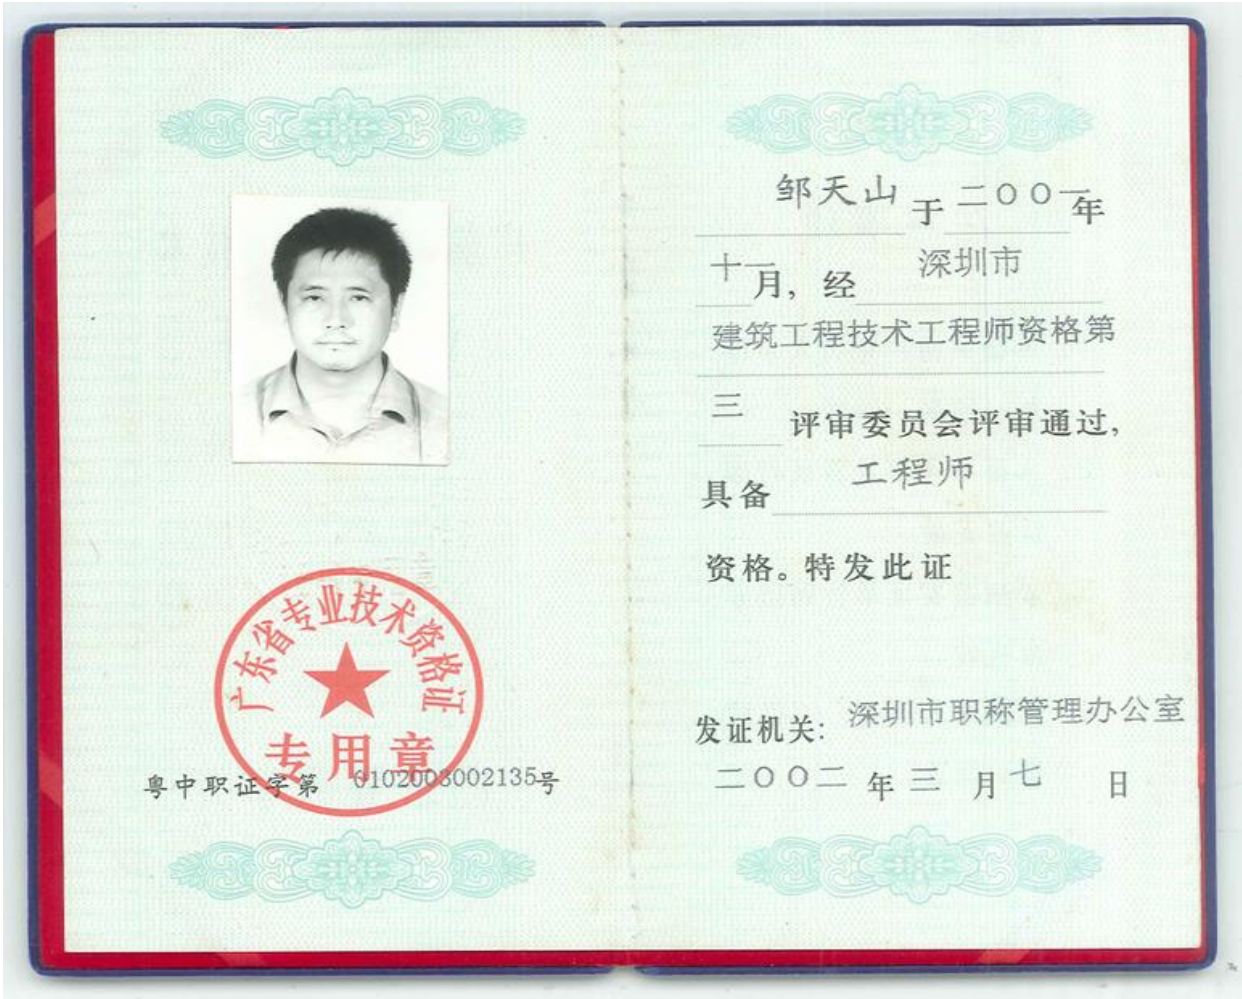 广东省专业技术资格证
专用章
粤中职证字第 0102003002135号
邹天山 于 二〇〇一年
十一月，经 深圳市
建筑工程技术工程师资格第
三 评审委员会评审通过，
具备 工程师
资格。特发此证
发证机关： 深圳市职称管理办公室
二〇〇二 年 三 月 七 日